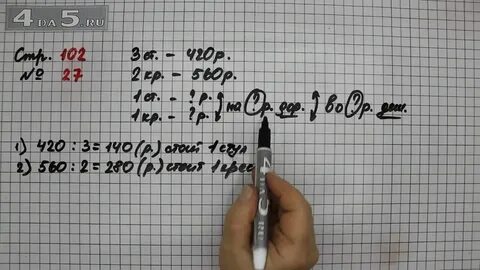 4DA5.RU
Стр. 102
№ 27
3 ст. - 420 р.
2 кр. - 560 р.
1 ст. - ? р.
1 кр. - ? р.
на ? р. дор. во ? р. деш.
1) 420 : 3 = 140 (р.) стоит 1 стул
2) 560 : 2 = 280 (р.) стоит 1 крес